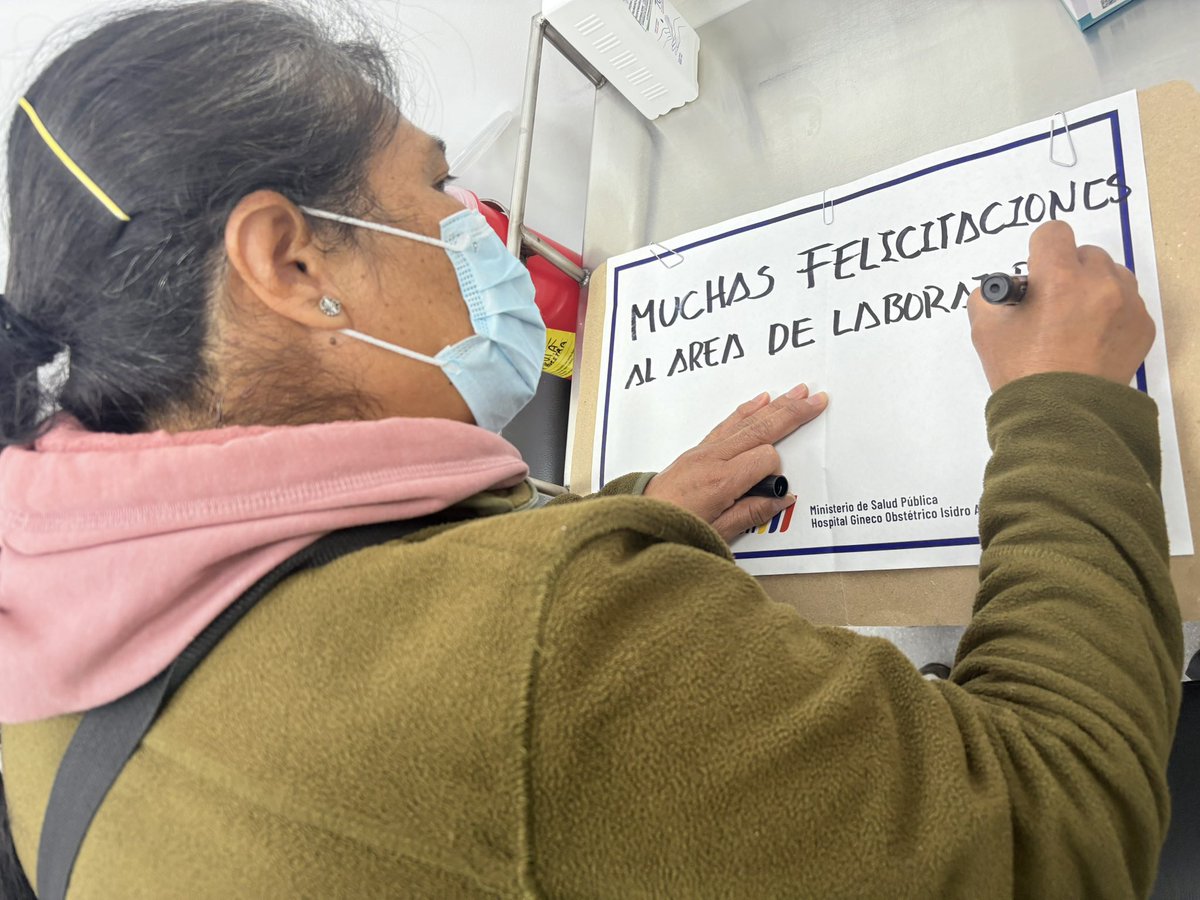 MUCHAS FELICITACIONES
AL AREA DE
Ministerio de Salud Pública
Hospital Gineco Obstétrico Isidro